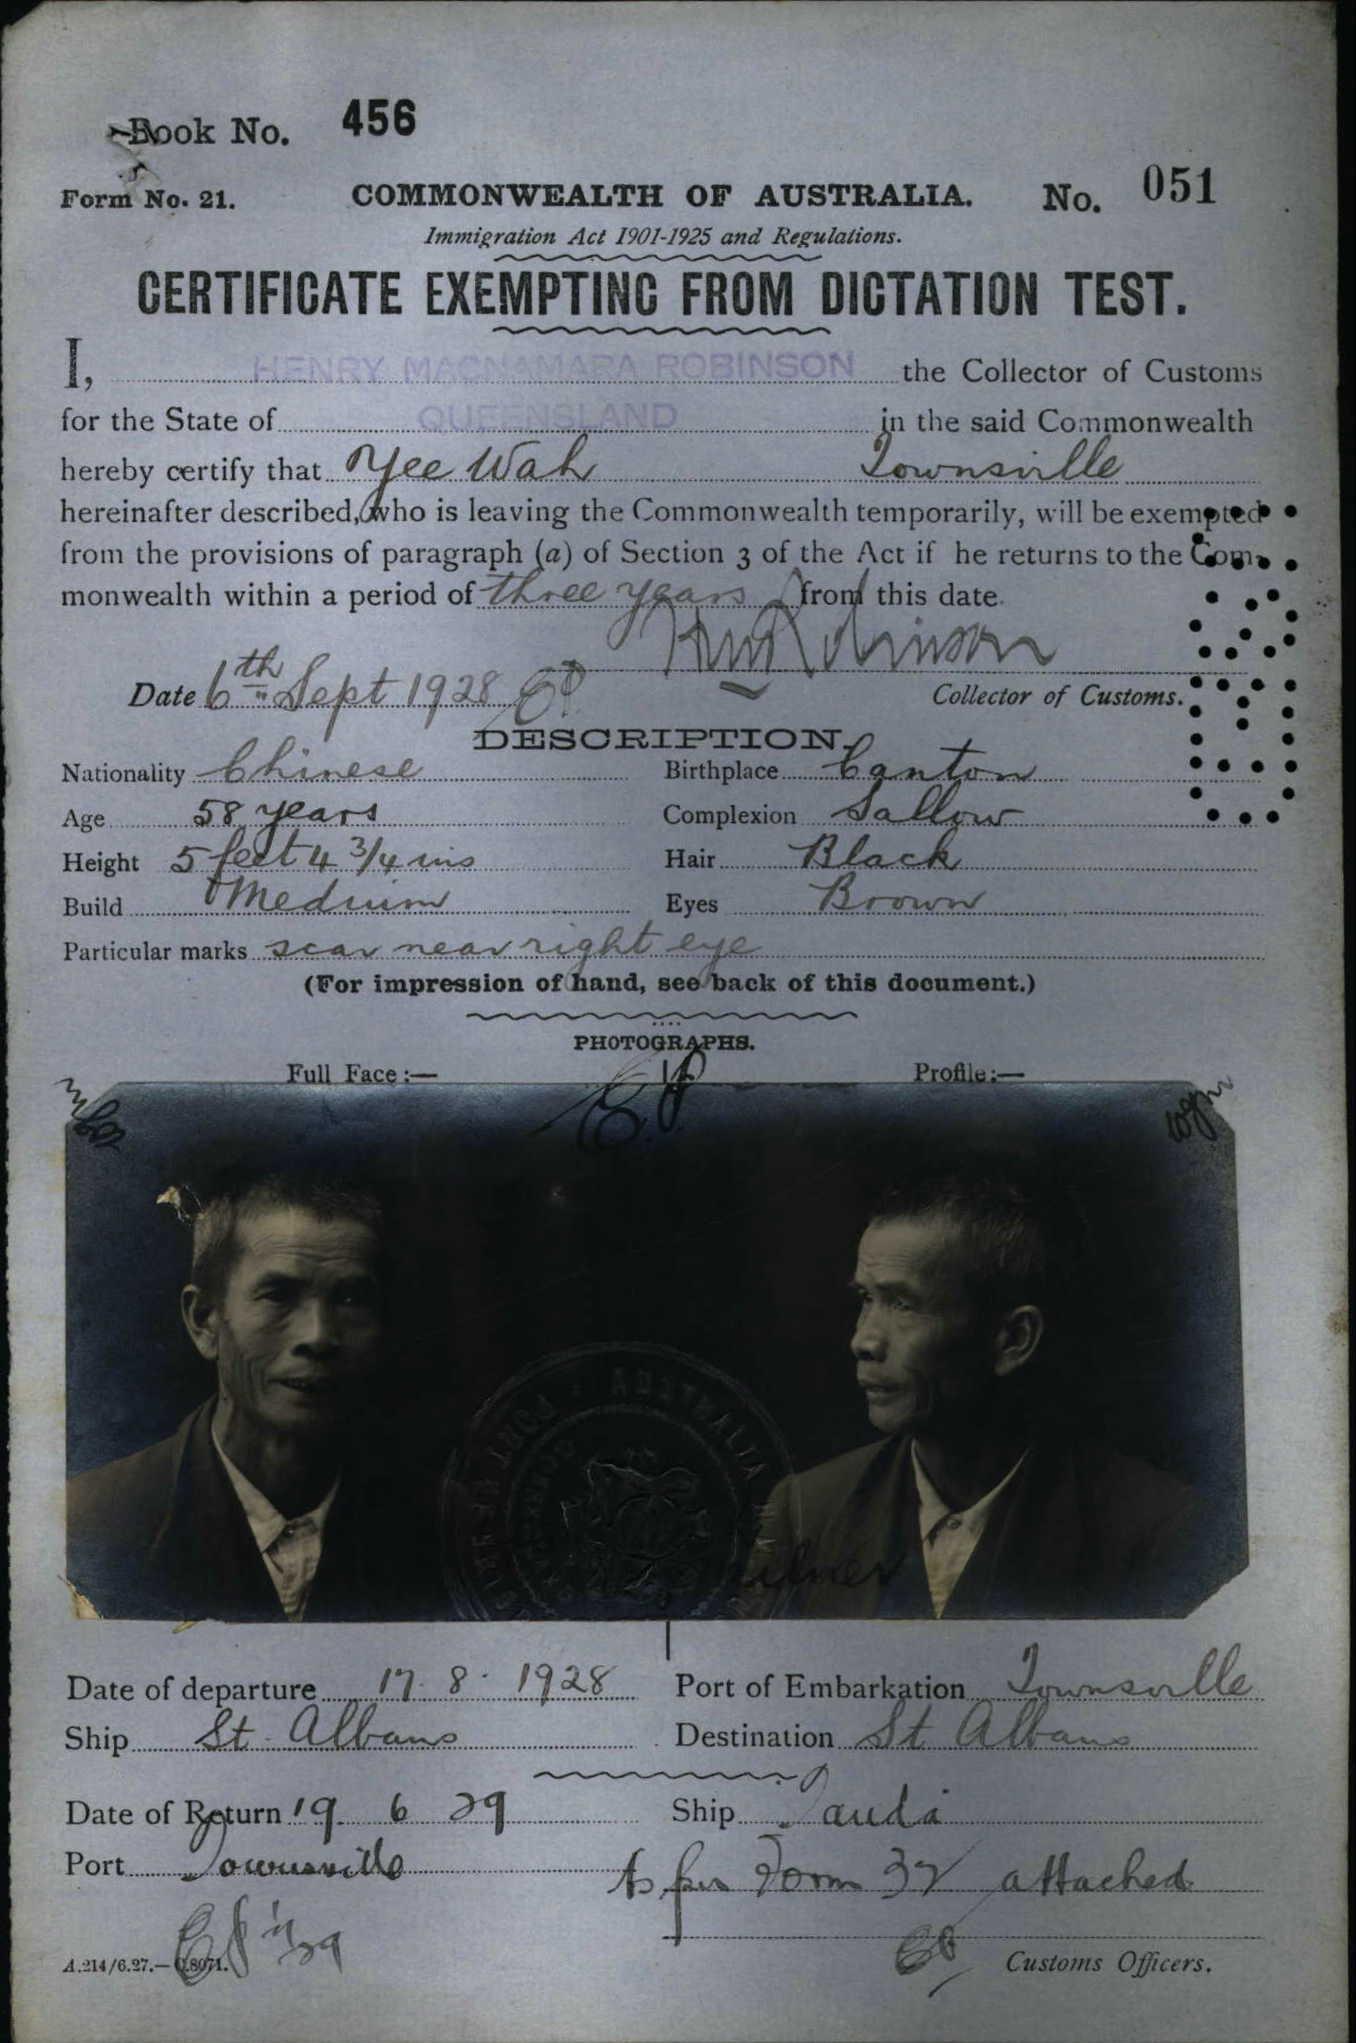 Book No. 456
Form No. 21. COMMONWEALTH OF AUSTRALIA. No. 051
Immigration Act 1901-1925 and Regulations.
CERTIFICATE EXEMPTING FROM DICTATION TEST.
I, HENRY MACNAMARA ROBINSON the Collector of Customs
for the State of QUEENSLAND in the said Commonwealth
hereby certify that Yee Wah Townsville
hereinafter described, who is leaving the Commonwealth temporarily, will be exempted
from the provisions of paragraph (a) of Section 3 of the Act if he returns to the Com-
monwealth within a period of three years from this date.
HMRobinson
Date 6th Sept 1928 Collector of Customs.
DESCRIPTION.
Nationality Chinese Birthplace Canton
Age 58 years Complexion Sallow
Height 5 feet 4 3/4 ins Hair Black
Build Medium Eyes Brown
Particular marks scar near right eye
(For impression of hand, see back of this document.)
PHOTOGRAPHS.
Full Face:— Profile:—
AUSTRALIA
Date of departure 17. 8. 1928 Port of Embarkation Townsville
Ship St. Albans Destination St Albans
Date of Return 19. 6 29 Ship Tanda
Port Townsville As per Form 32 attached
A.214/6.27.—C.8071. Customs Officers.